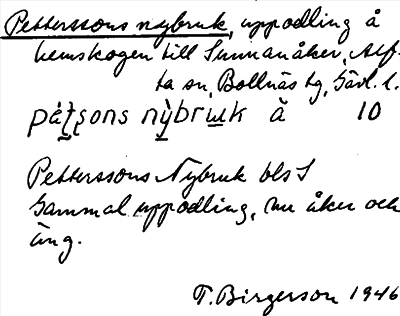 Petterssons nybruk, uppodling å
hemskogen till Sunnanåker, Alf-
ta sn, Bollnäs tg, Gävl. l.
pæ̀t̩ʂons nỳbrɯk å 10
Petterssons Nybruk bls S
Gammal uppodling, nu åker och
äng.
T. Birgerson 1946